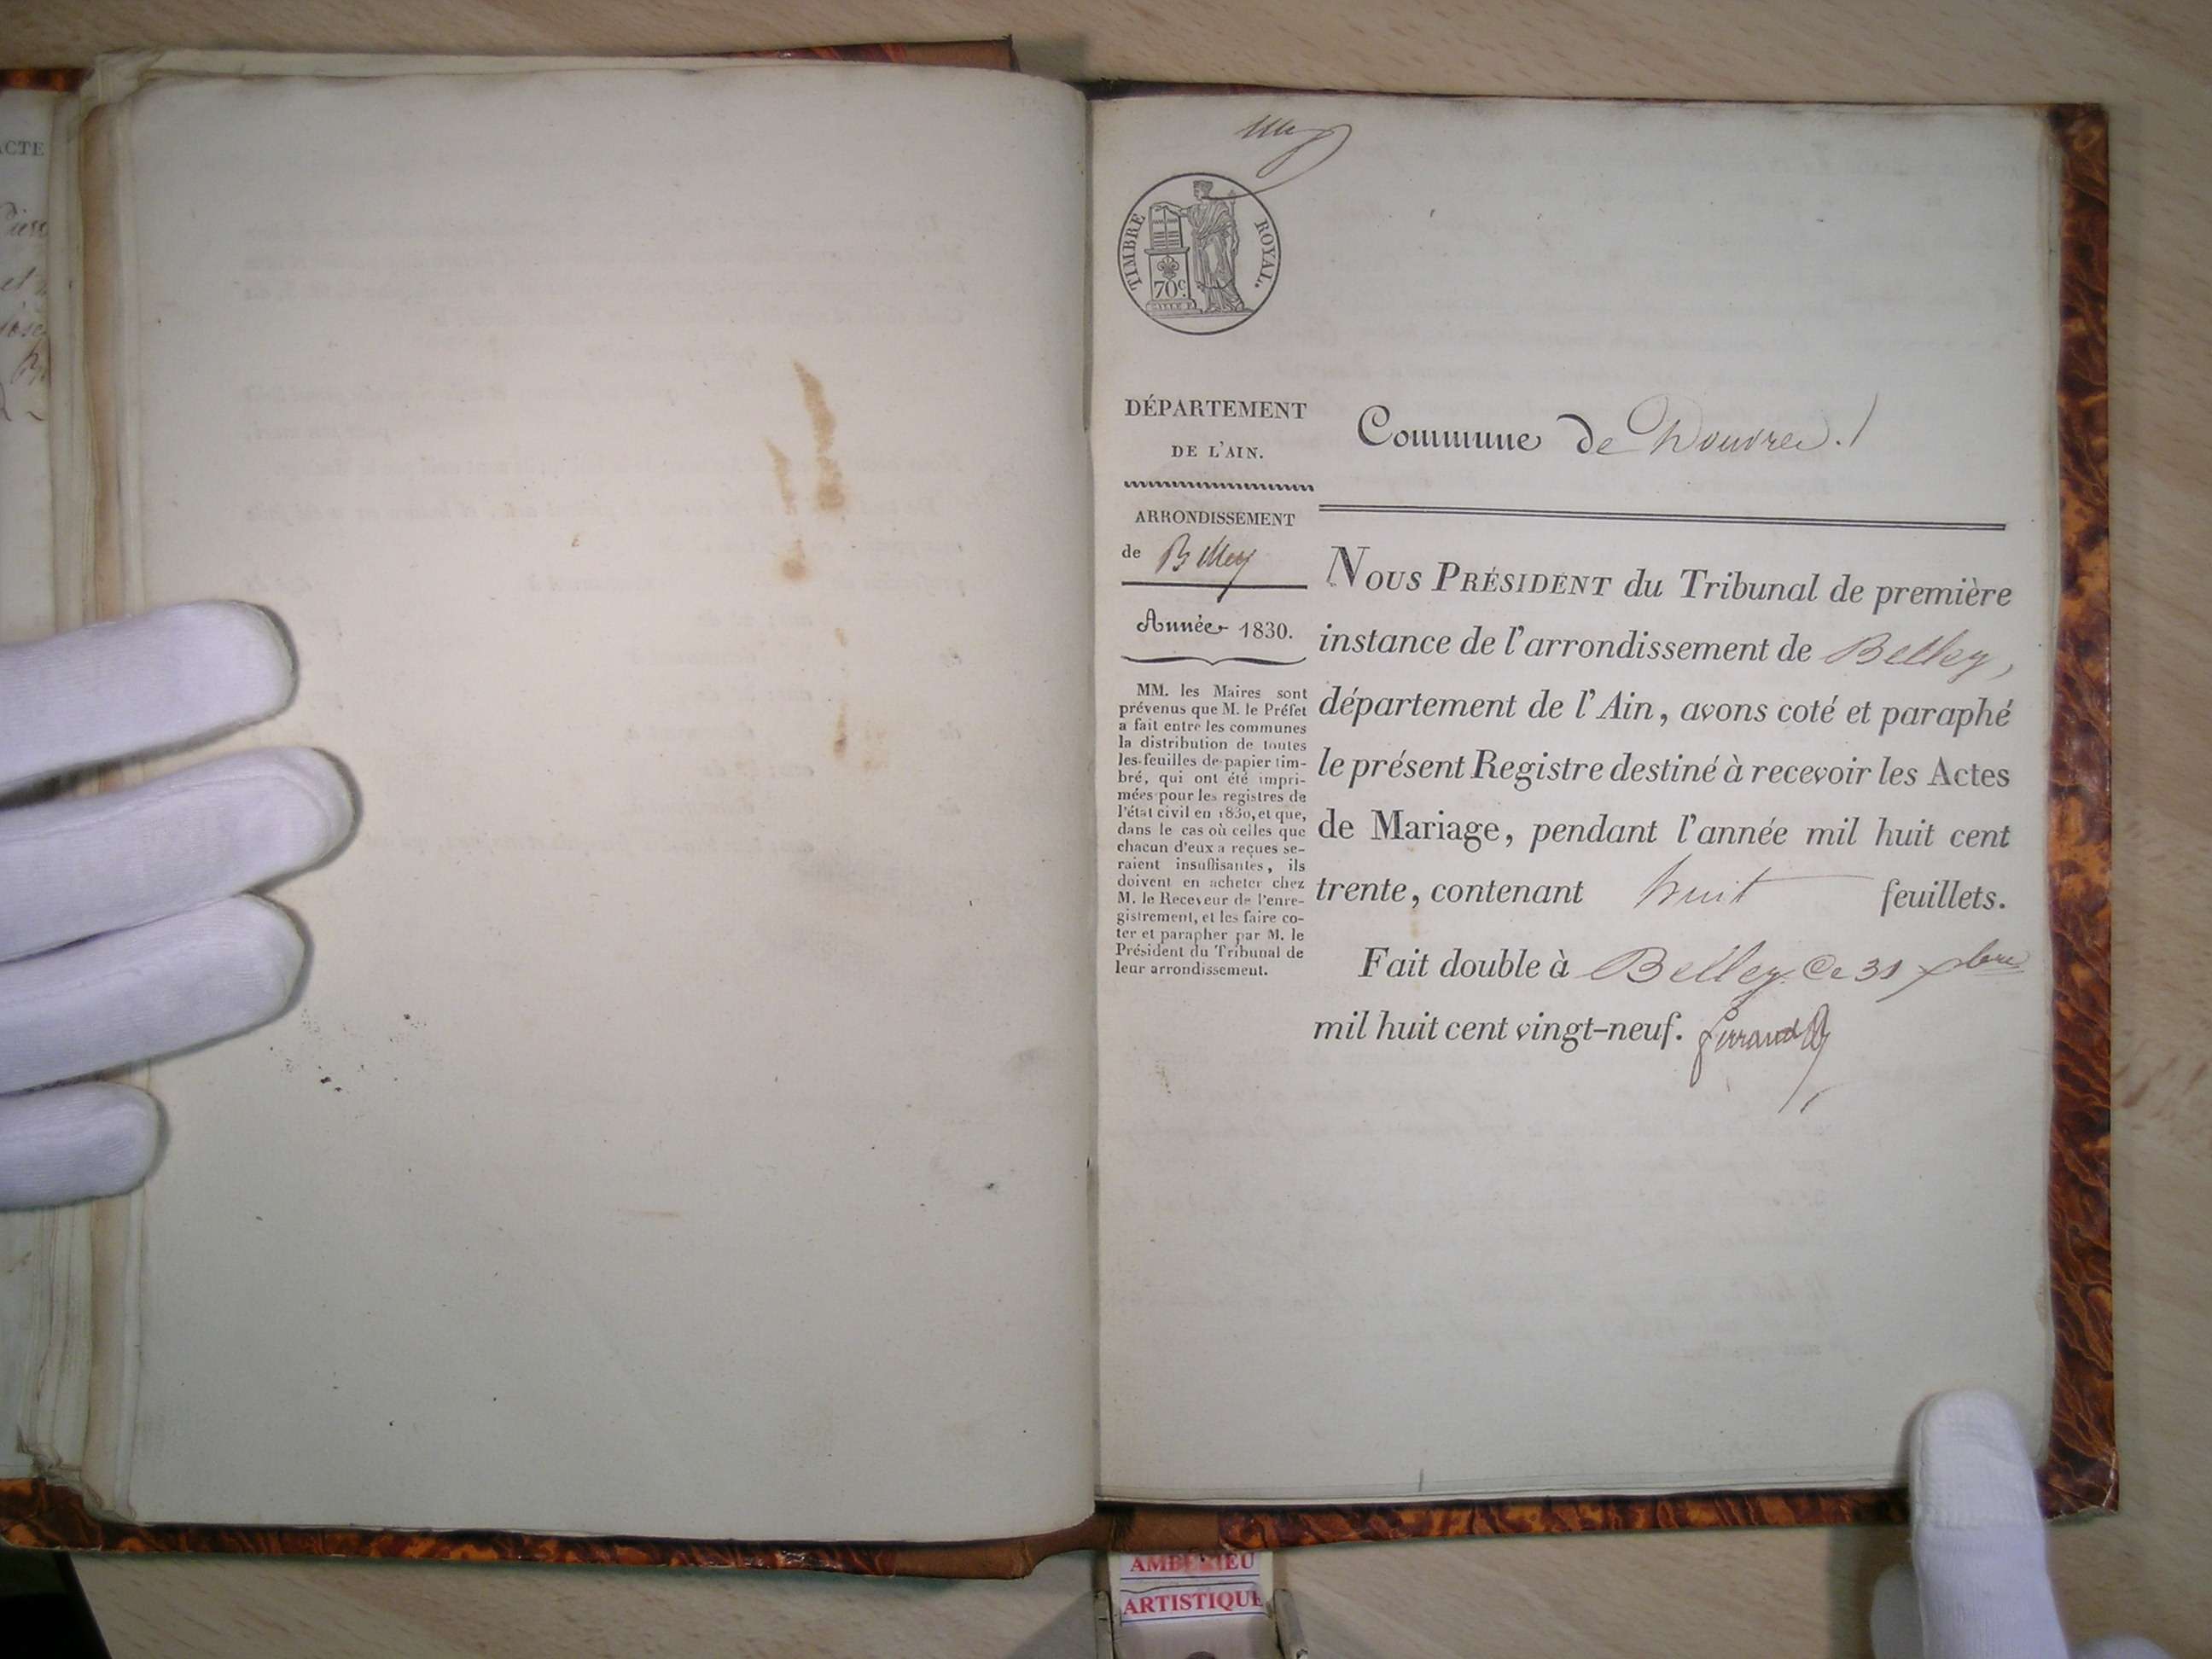 ACTE
TIMBRE ROYAL.
70c.
DÉPARTEMENT
DE L'AIN.
Commune de Douvres.
ARRONDISSEMENT
de Belley
Année 1830.
MM. les Maires sont
prévenus que M. le Préfet
a fait entre les communes
la distribution de toutes
les feuilles de papier tim-
bré, qui ont été impri-
mées pour les registres de
l'état civil en 1830, et que,
dans le cas où celles que
chacun d'eux a reçues se-
raient insuffisantes, ils
doivent en acheter chez
M. le Receveur de l'enre-
gistrement, et les faire co-
ter et parapher par M. le
Président du Tribunal de
leur arrondissement.
NOUS PRÉSIDENT du Tribunal de première
instance de l'arrondissement de Belley,
département de l'Ain, avons coté et paraphé
le présent Registre destiné à recevoir les Actes
de Mariage, pendant l'année mil huit cent
trente, contenant huit feuillets.
Fait double à Belley Ce 31 xbre
mil huit cent vingt-neuf. Ferrand
AMBERIEU
ARTISTIQUE